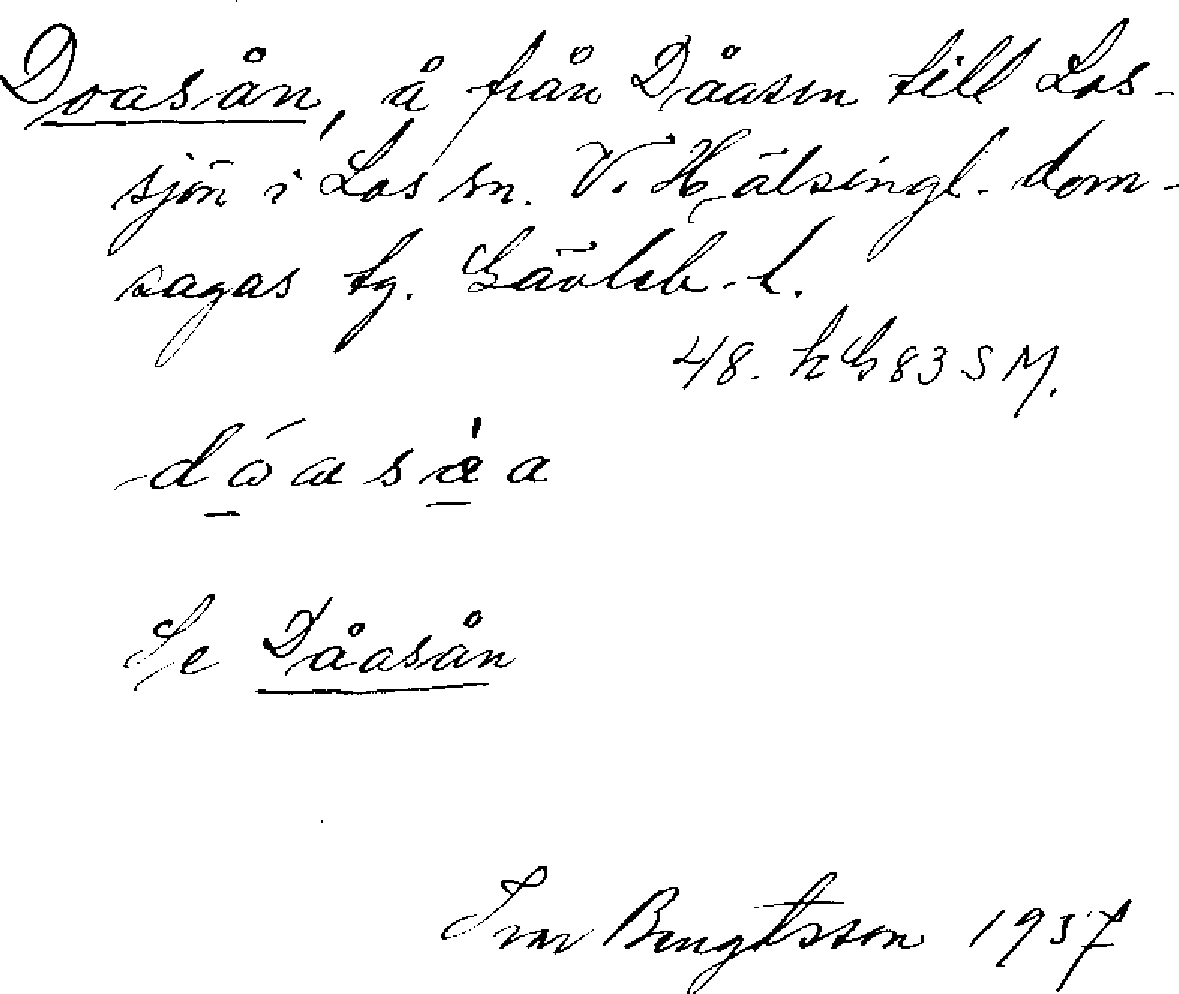 Doasån, å från Dåasen till Los-
sjön i Los sn. V. Hälsingl. dom-
sagas tg. Gävleb. l.
48. h G 83 S M.
Se Dåasån
Ivar Bengtsson 1937